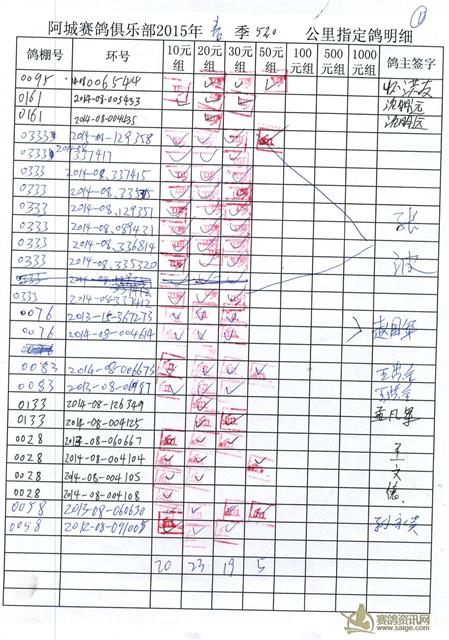 ①
阿城赛鸽俱乐部2015年 春 季 520 公里指定鸽明细
鸽棚号 环号 10元组 20元组 30元组 50元组 100元组 500元组 1000元组 鸽主签字
0095 006544
0161 2014-08-005433 沈明元
0161 2014-08-004635 沈明元
0333 2014-08-129358
0333 2014-08 337417
0333 2014-08-337415
0333 2014-08-33515
0333 2014-08-129351 张
0333 2014-08-089421
0333 2014-08-336814 波
0333 2014-08-335320
0333
0333 2014-08-337412
0076 2013-15-367273
0076 2014-08-004614 赵国军
0083 2014-08-006673
0083 2013-08-06997
0133 2014-08-126349
0133 2014-08-004125 孟凡军
0028 2013-08-060667
0028 2014-08-004104 王
0028 2014-08-004105 文
0028 2014-08-004108
0058 2013-08-060630
0058 2012-08-091005
20 23 19 5
赛鸽资讯网
www.saige.com